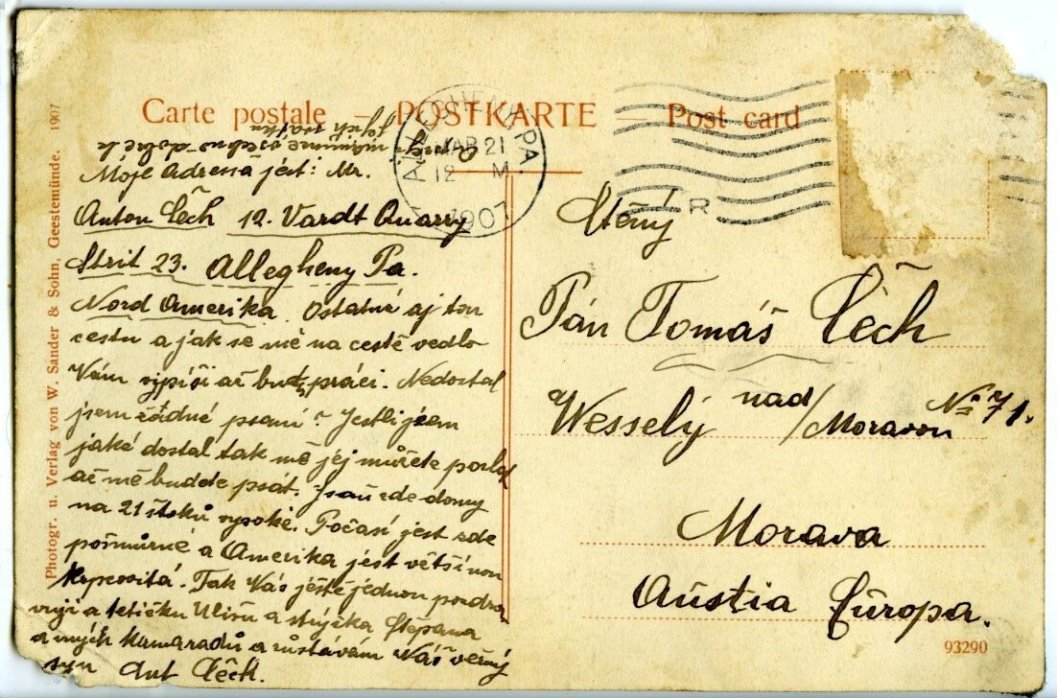 Carte postale – POSTKARTE – Post card
ALLEGHENY, PA.
MAR 21
12 M
1907
R
Photogr. u. Verlag von W. Sander & Sohn, Geestemünde. 1907
Moje adressa jest: Mr.
Anton Čech 12. Vardt Quarry
Strit 23. Allegheny Pa.
Nord Amerika. Ostatné aj tou
cestu a jak se mě na cestě vedlo
Vám vypíši až budu práci. Nedostal
jsem žádné psaní? Jestli jsem
jaké dostal tak mě jej můžete poslat
až mě budete psát. Jsou zde domy
na 21 štoků vysoké. Počasí jest zde
pošmůrne a Amerika jest většinou
kopcovitá. Tak Vás ještě jednou pozdra
vuji a tetičku a strýčka Štěpana
a mých kamaradů a zůstávam Váš věrný
syn Ant Čech.
Ctěný
Pán Tomáš Čech
Wesselý nad/Moravou № 71.
Morava
Aústia Európa.
93290